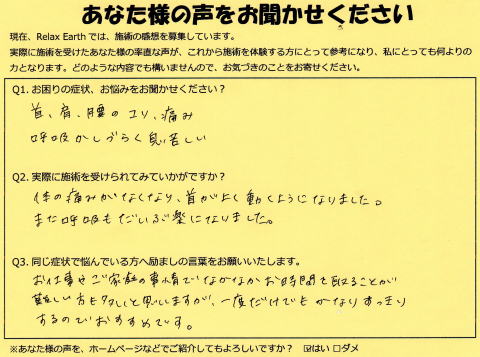 あなた様の声をお聞かせください
現在、Relax Earth では、施術の感想を募集しています。
実際に施術を受けたあなた様の率直な声が、これから施術を体験する方にとって参考になり、私にとっても何よりの
力となります。どのような内容でも構いませんので、お気づきのことをお寄せください。
Q1. お困りの症状、お悩みをお聞かせください？
首、肩、腰のコリ、痛み
呼吸がしづらく息苦しい
Q2. 実際に施術を受けられてみていかがですか？
体の痛みがなくなり、首がよく動くようになりました。
また呼吸もだいぶ楽になりました。
Q3. 同じ症状で悩んでいる方へ励ましの言葉をお願いいたします。
お仕事やご家庭の事情でなかなかお時間を取ることが
難しい方も多いと思いますが、一度だけでもかなりすっきり
するのでおすすめです。
※あなた様の声を、ホームページなどでご紹介してもよろしいですか？ ☑はい □ダメ